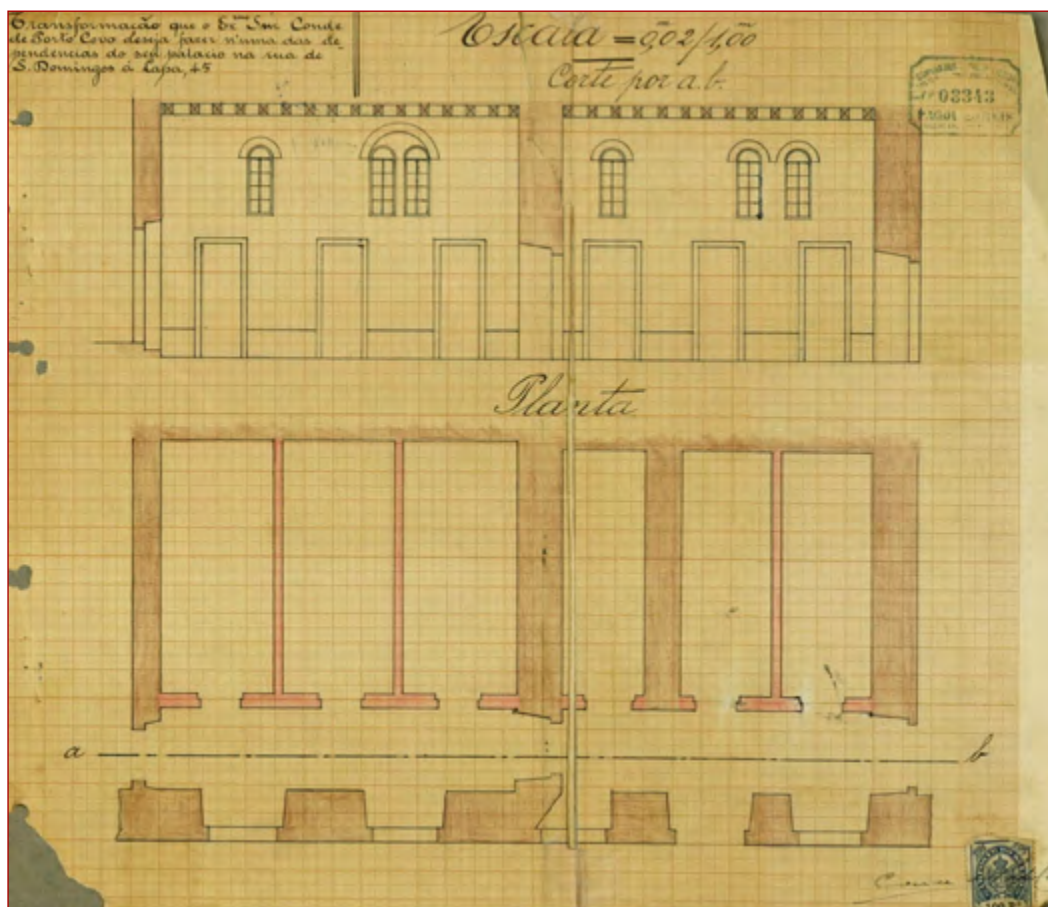 Transformação que o Exmo Snr Conde
de Porto Covo deseja fazer n'uma das de-
pendencias do seu palacio na rua de
S. Domingos á Lapa, 45
Escala = 0,02/1,00
Corte por a.b.
03343
Planta
a
b